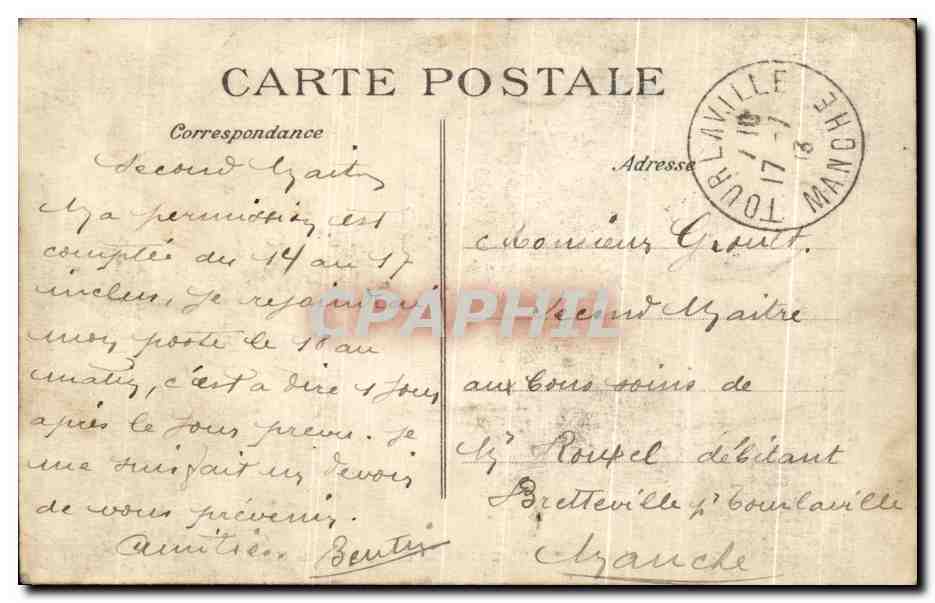 CARTE POSTALE
Correspondance
Second Maitre
Ma permission est
comptée du 14 au 17
inclus, je rejoindrai
mon poste le 18 au
matin, c'est a dire 1 jour
après le jour prévu. Je
me suis fait un devoir
de vous prévenir.
Amitiés.
Adresse
TOURLAVILLE
MANCHE
17 -7
13
Monsieur Grouet.
Second Maitre
aux bons soins de
Mr Rouxel débitant
Bretteville pr Tourlaville
Manche
CPAPHIL